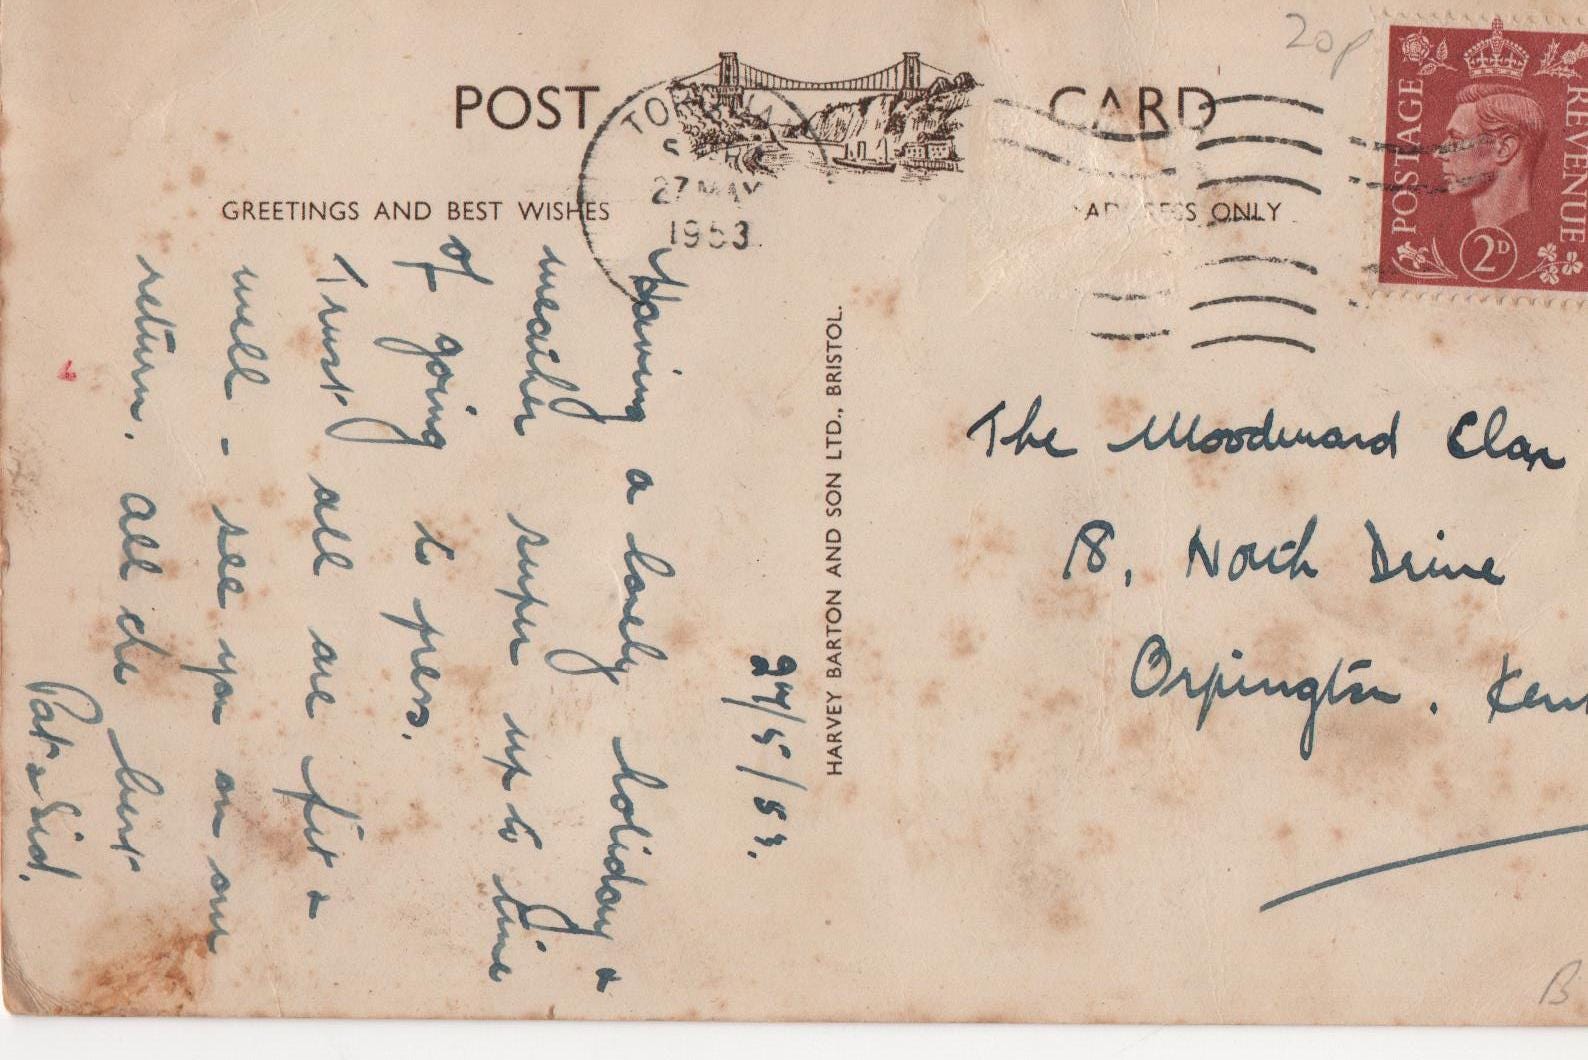 20p
POST CARD
POSTAGE REVENUE
2D
27 MAY
1953
GREETINGS AND BEST WISHES
ADDRESS ONLY
HARVEY BARTON AND SON LTD., BRISTOL.
27/5/53.
Having a lovely holiday &
weather super up to time
of going to press.
Trust all are fit &
well - see you on our
return. All the best
Pat & Sid.
The Woodward Clan
18, North Drive
Orpington. Kent
B